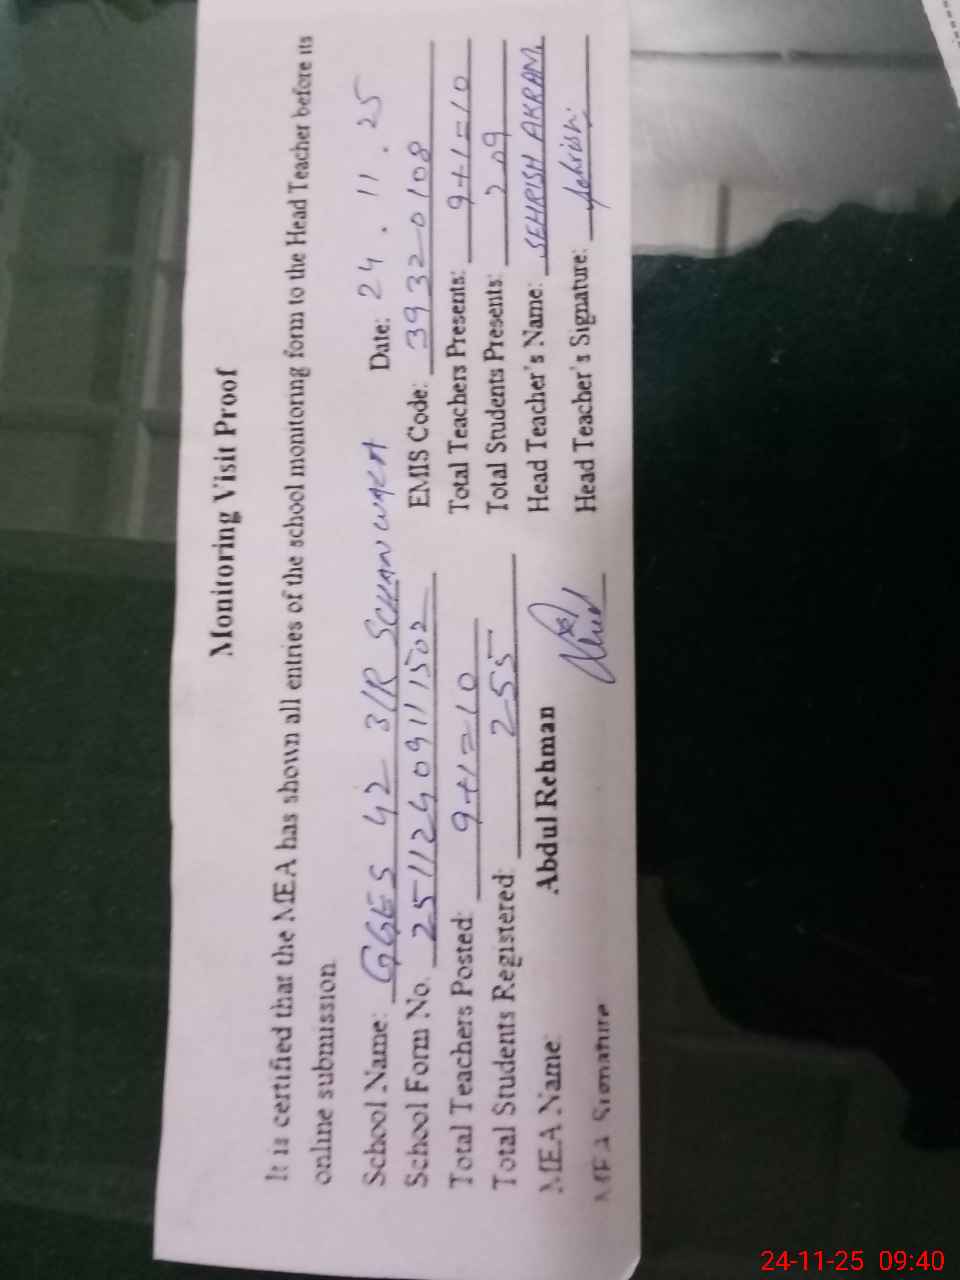 Monitoring Visit Proof
It is certified that the MEA has shown all entries of the school monitoring form to the Head Teacher before its
online submission.
School Name: GGES 42 3/R SCHANWALA Date: 24.11.25
School Form No. 25112409111502 EMIS Code: 39320108
Total Teachers Posted: 9+1=10 Total Teachers Presents: 9+1=10
Total Students Registered: 255 Total Students Presents: 209
MEA Name: Abdul Rehman Head Teacher's Name: SEHRISH AKRAM.
MEA Signature Head Teacher's Signature: Sehrish
24-11-25 09:40